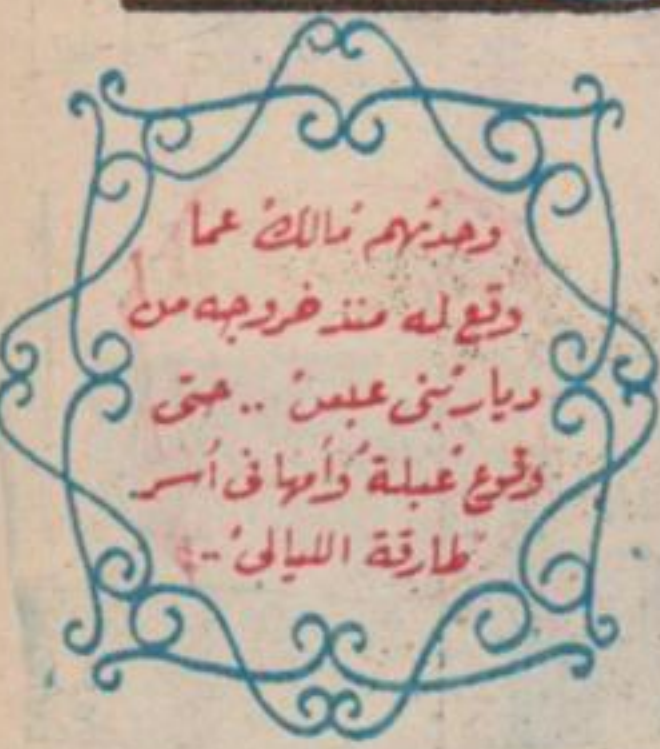 وحدثهم "مالك" عما
وقع له منذ خروجه من
ديار "بنى عبس" .. حتى
وقوع "عبلة" وأمها فى أسر
"طارقة الليالى" ..